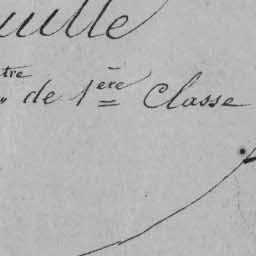 uille
tre
" de 1ère Classe